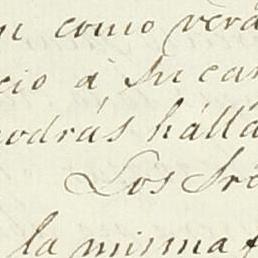 como verá
cio á su car
podrás hállá
Los Sre
la misma f